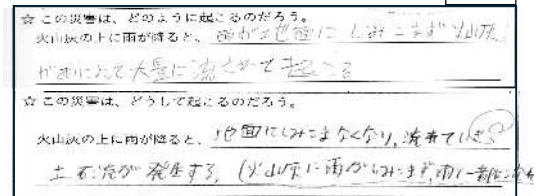 ☆ この災害は、どのように起こるのだろう。
火山灰の上に雨が降ると、雨が地面にしみこまず火山灰
が雨によって大量に流されて起こる
☆ この災害は、どうして起こるのだろう。
火山灰の上に雨が降ると、地面にしみこまなくなり、流れていき
土石流が発生する。(火山灰に雨がしみこまず、雨と一緒に流れ